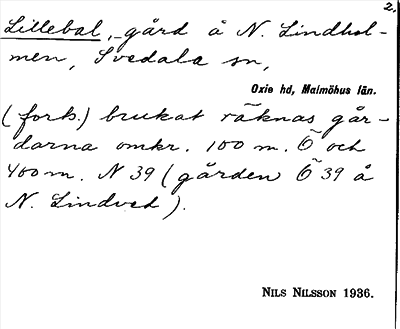 2.
Lillebal, gård å N. Lindhol-
men, Svedala sn,
Oxie hd, Malmöhus län.
(forts.) brukat räknas går-
darna omkr. 100 m. Ö och
400 m. N 39 (gården Ö 39 å
N. Lindved).
NILS NILSSON 1936.